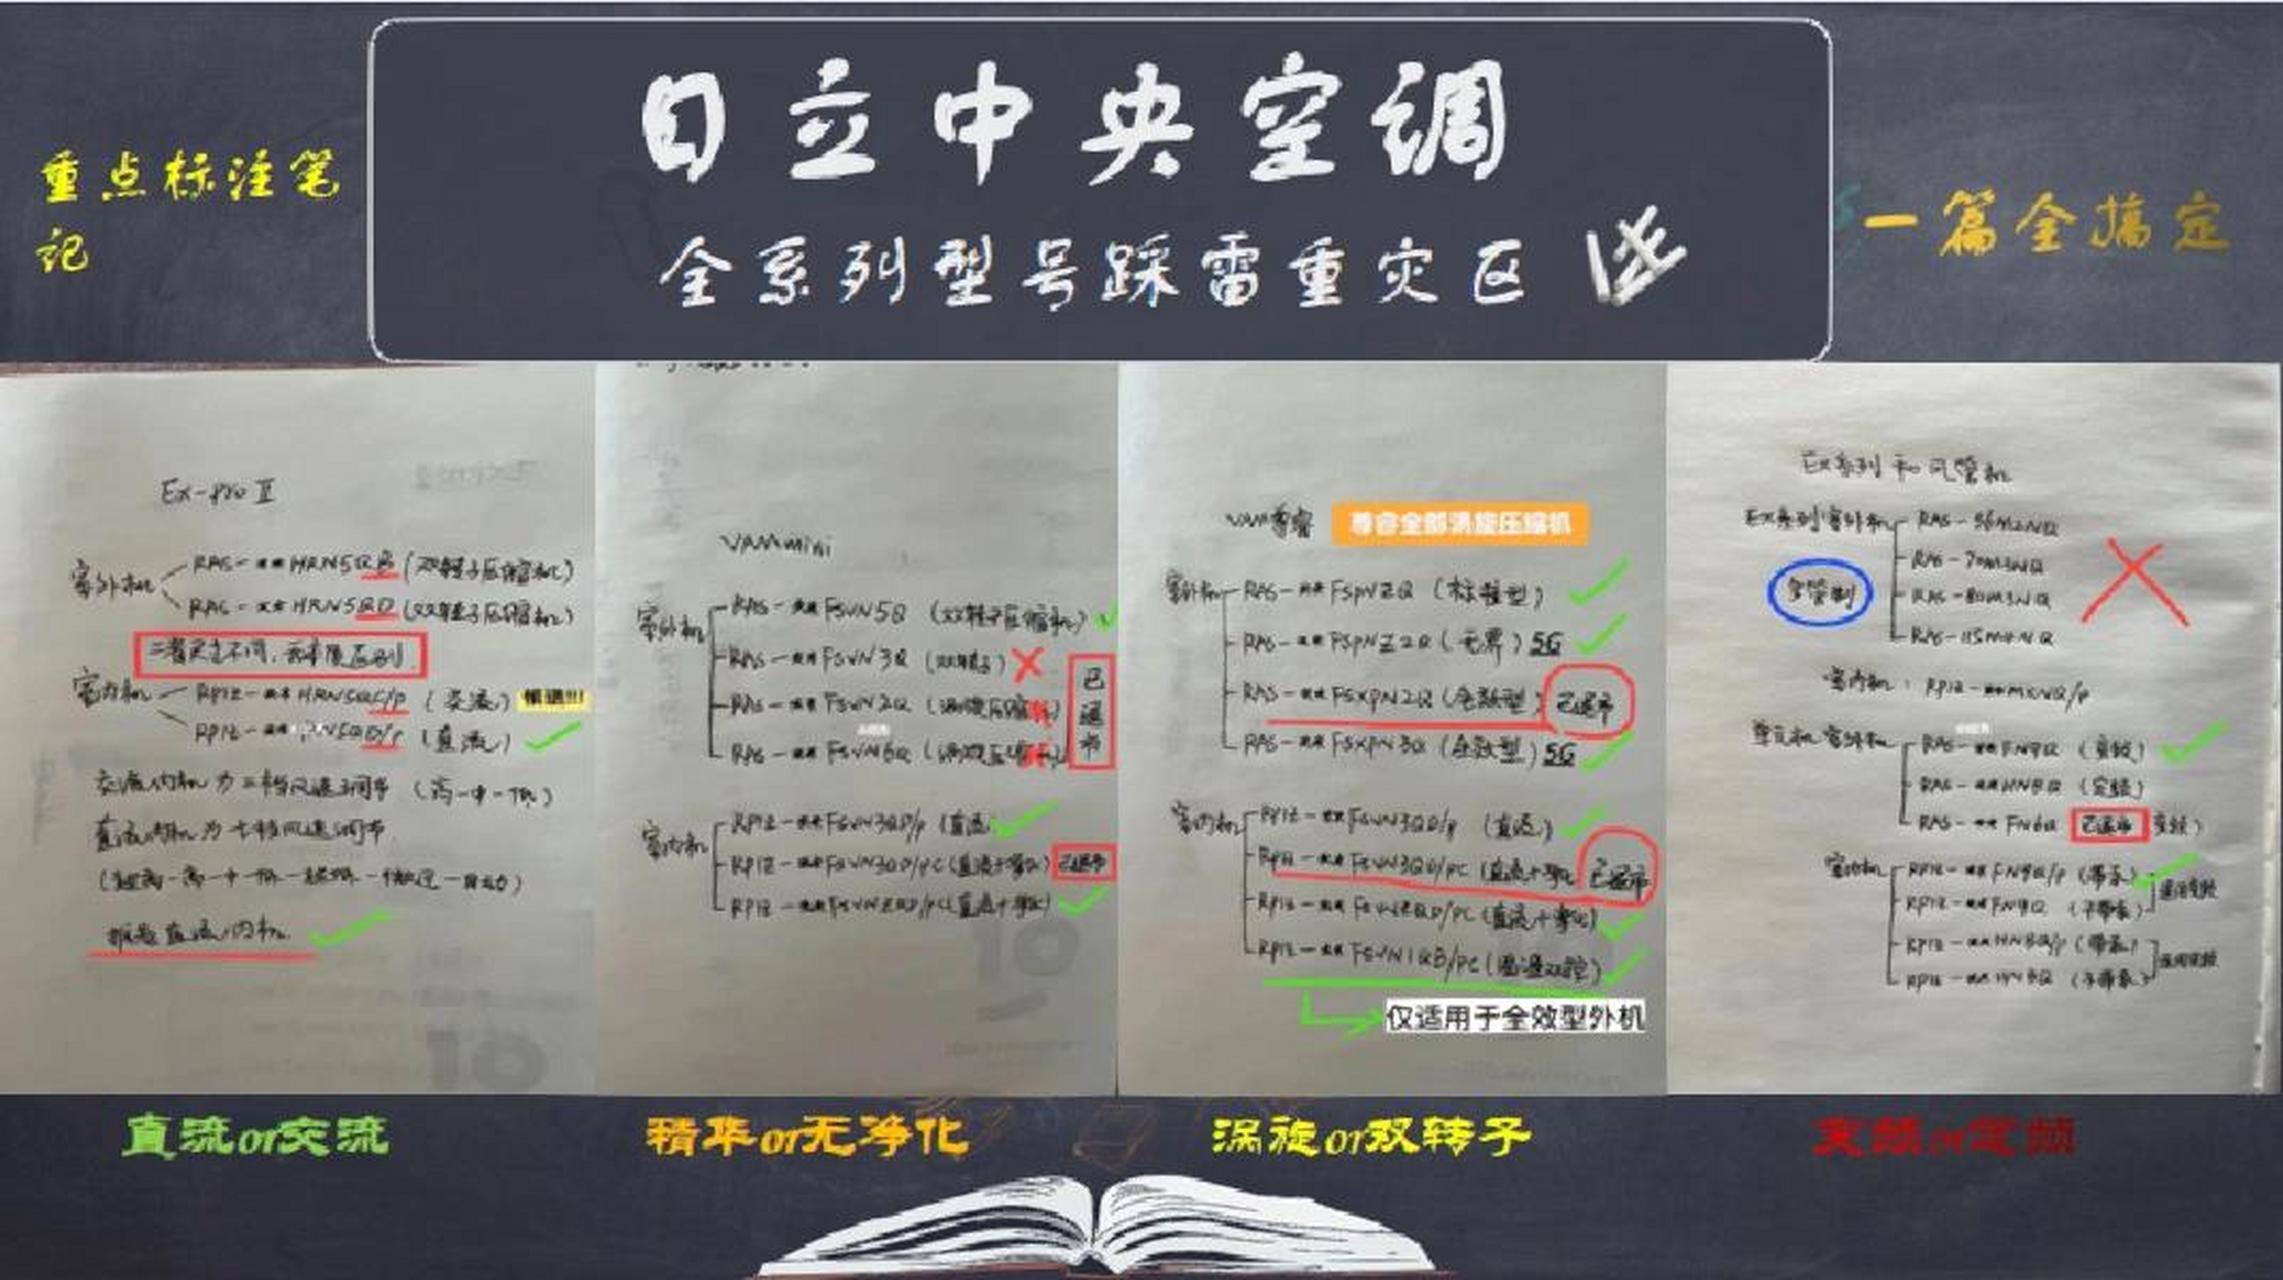 日立中央空调
全系列型号踩雷重灾区
重点标注笔
记
一篇全搞定
Ex-pro II
室外机
RAS-**HRN5QB(双转子压缩机)
RAS-**HRN5QD(双转子压缩机)
室内机
RPIZ-**HRN5QC/P(交流)
RPIZ-**HRN5QD/P(直流)
交流内机为三档风速调节(高-中-低)
直流内机为七档风速调节
推荐直流内机
VAM mini
室外机
RAS-**FSVN5Q(双转子压缩机)
RAS-**FSVN3Q(双转子)
RAS-**FSVN2Q
RAS-**FSVN6Q
已退市
室内机
RPIZ-**FSVN3QD/P(直流)
RPIZ-**FSVN3QD/PC(直流+净化)已退市
RPIZ-**FSVNZQD/PC(直流+净化)
VAM尊睿
尊睿全部涡旋压缩机
室外机
RAS-**FSPNZQ(标准型)
RAS-**FSPNZ2Q(无界)5G
RAS-**FSXPN2Q(全效型)已退市
RAS-**FSXPN3Q(全效型)5G
室内机
RPIZ-**FSVN3QD/P(直流)
RPIZ-**FSVN3QD/PC(直流+净化 已退市
RPIZ-**FSVNZQD/PC(直流+净化)
RPIZ-**FSVN1QB/PC(温湿双控)
仅适用于全效型外机
Ex系列和风管机
EX系列室外机
RAS-70M3NQ
RAS-80M3NQ
室内机:
单元机室外机
RAS-**FN9Q(变频)
RAS-**HN8Q(定频)
RAS-**FN6Q 已退市 变频)
室内机
RPIZ-**FN9Q/P(带泵)
RPIZ-**FN9Q(不带泵)
RPIZ-**HN8Q/P(带泵)
RPIZ-**HN8Q(不带泵)
直流or交流
精华or无净化
涡旋or双转子
变频or定频